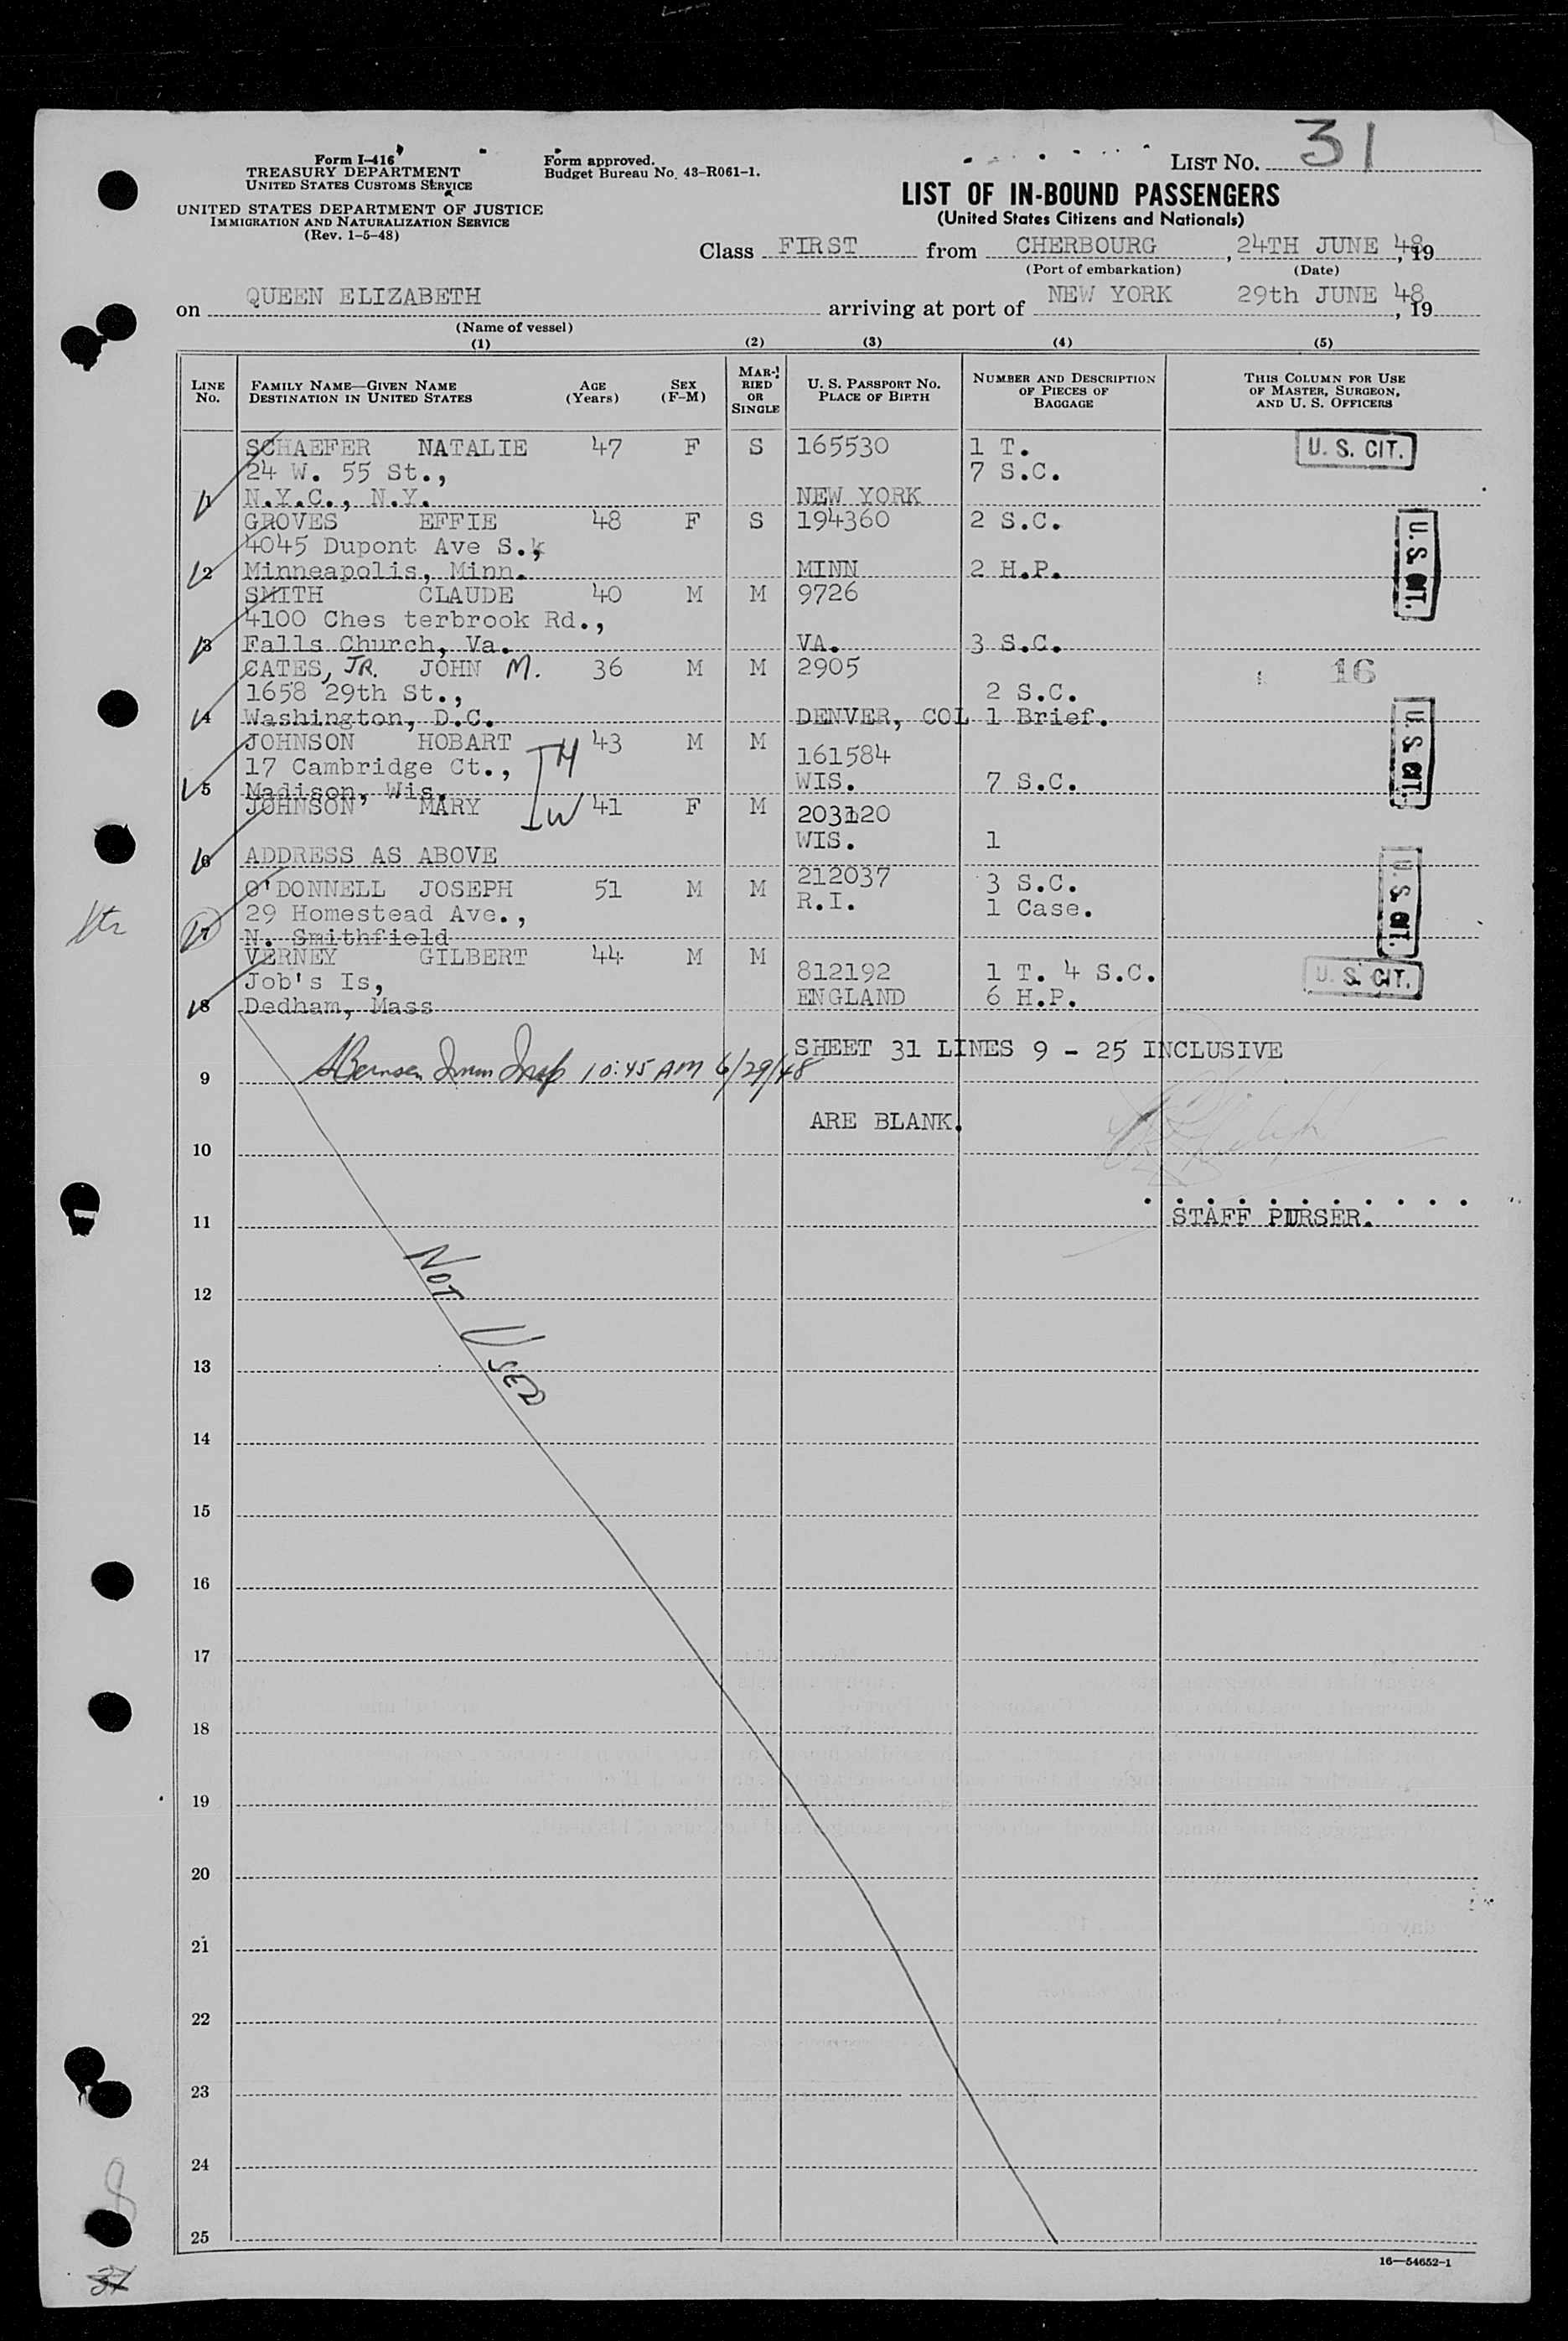 Form I-416
TREASURY DEPARTMENT
UNITED STATES CUSTOMS SERVICE
UNITED STATES DEPARTMENT OF JUSTICE
IMMIGRATION AND NATURALIZATION SERVICE
(Rev. 1-5-48)
Form approved.
Budget Bureau No. 43-R061-1.
LIST NO. 31
LIST OF IN-BOUND PASSENGERS
(United States Citizens and Nationals)
Class FIRST from CHERBOURG, 24TH JUNE 48, 19
(Port of embarkation) (Date)
on QUEEN ELIZABETH arriving at port of NEW YORK 29th JUNE 48, 19
(Name of vessel)
(1) (2) (3) (4) (5)
LINE NO.
FAMILY NAME—GIVEN NAME
DESTINATION IN UNITED STATES
AGE (Years)
SEX (F-M)
MARRIED OR SINGLE
U. S. PASSPORT NO.
PLACE OF BIRTH
NUMBER AND DESCRIPTION OF PIECES OF BAGGAGE
THIS COLUMN FOR USE OF MASTER, SURGEON, AND U. S. OFFICERS
SCHAEFER NATALIE 47 F S 165530 1 T. U. S. CIT.
24 W. 55 St., 7 S.C.
1 N.Y.C., N.Y. NEW YORK
GROVES EFFIE 48 F S 194360 2 S.C. U. S. CIT.
4045 Dupont Ave S.,
2 Minneapolis, Minn. MINN 2 H.P.
SMITH CLAUDE 40 M M 9726
4100 Ches terbrook Rd.,
3 Falls Church, Va. VA. 3 S.C.
CATES, JR. JOHN M. 36 M M 2905 16
1658 29th St., 2 S.C.
4 Washington, D.C. DENVER, COL 1 Brief.
JOHNSON HOBART H 43 M M U. S. CIT.
17 Cambridge Ct., 161584
5 Madison, Wis. WIS. 7 S.C.
JOHNSON MARY W 41 F M 203120
WIS. 1
6 ADDRESS AS ABOVE
O'DONNELL JOSEPH 51 M M 212037 3 S.C. U. S. CIT.
29 Homestead Ave., R.I. 1 Case.
7 N. Smithfield
VERNEY GILBERT 44 M M
Job's Is, 812192 1 T. 4 S.C. U. S. CIT.
8 Dedham, Mass ENGLAND 6 H.P.
SHEET 31 LINES 9 - 25 INCLUSIVE
9 Immn Insp 10:45 AM 6/29/48
ARE BLANK.
10
11 STAFF PURSER.
NOT USED
12
13
14
15
16
17
18
19
20
21
22
23
24
25
16—54652-1
8
37